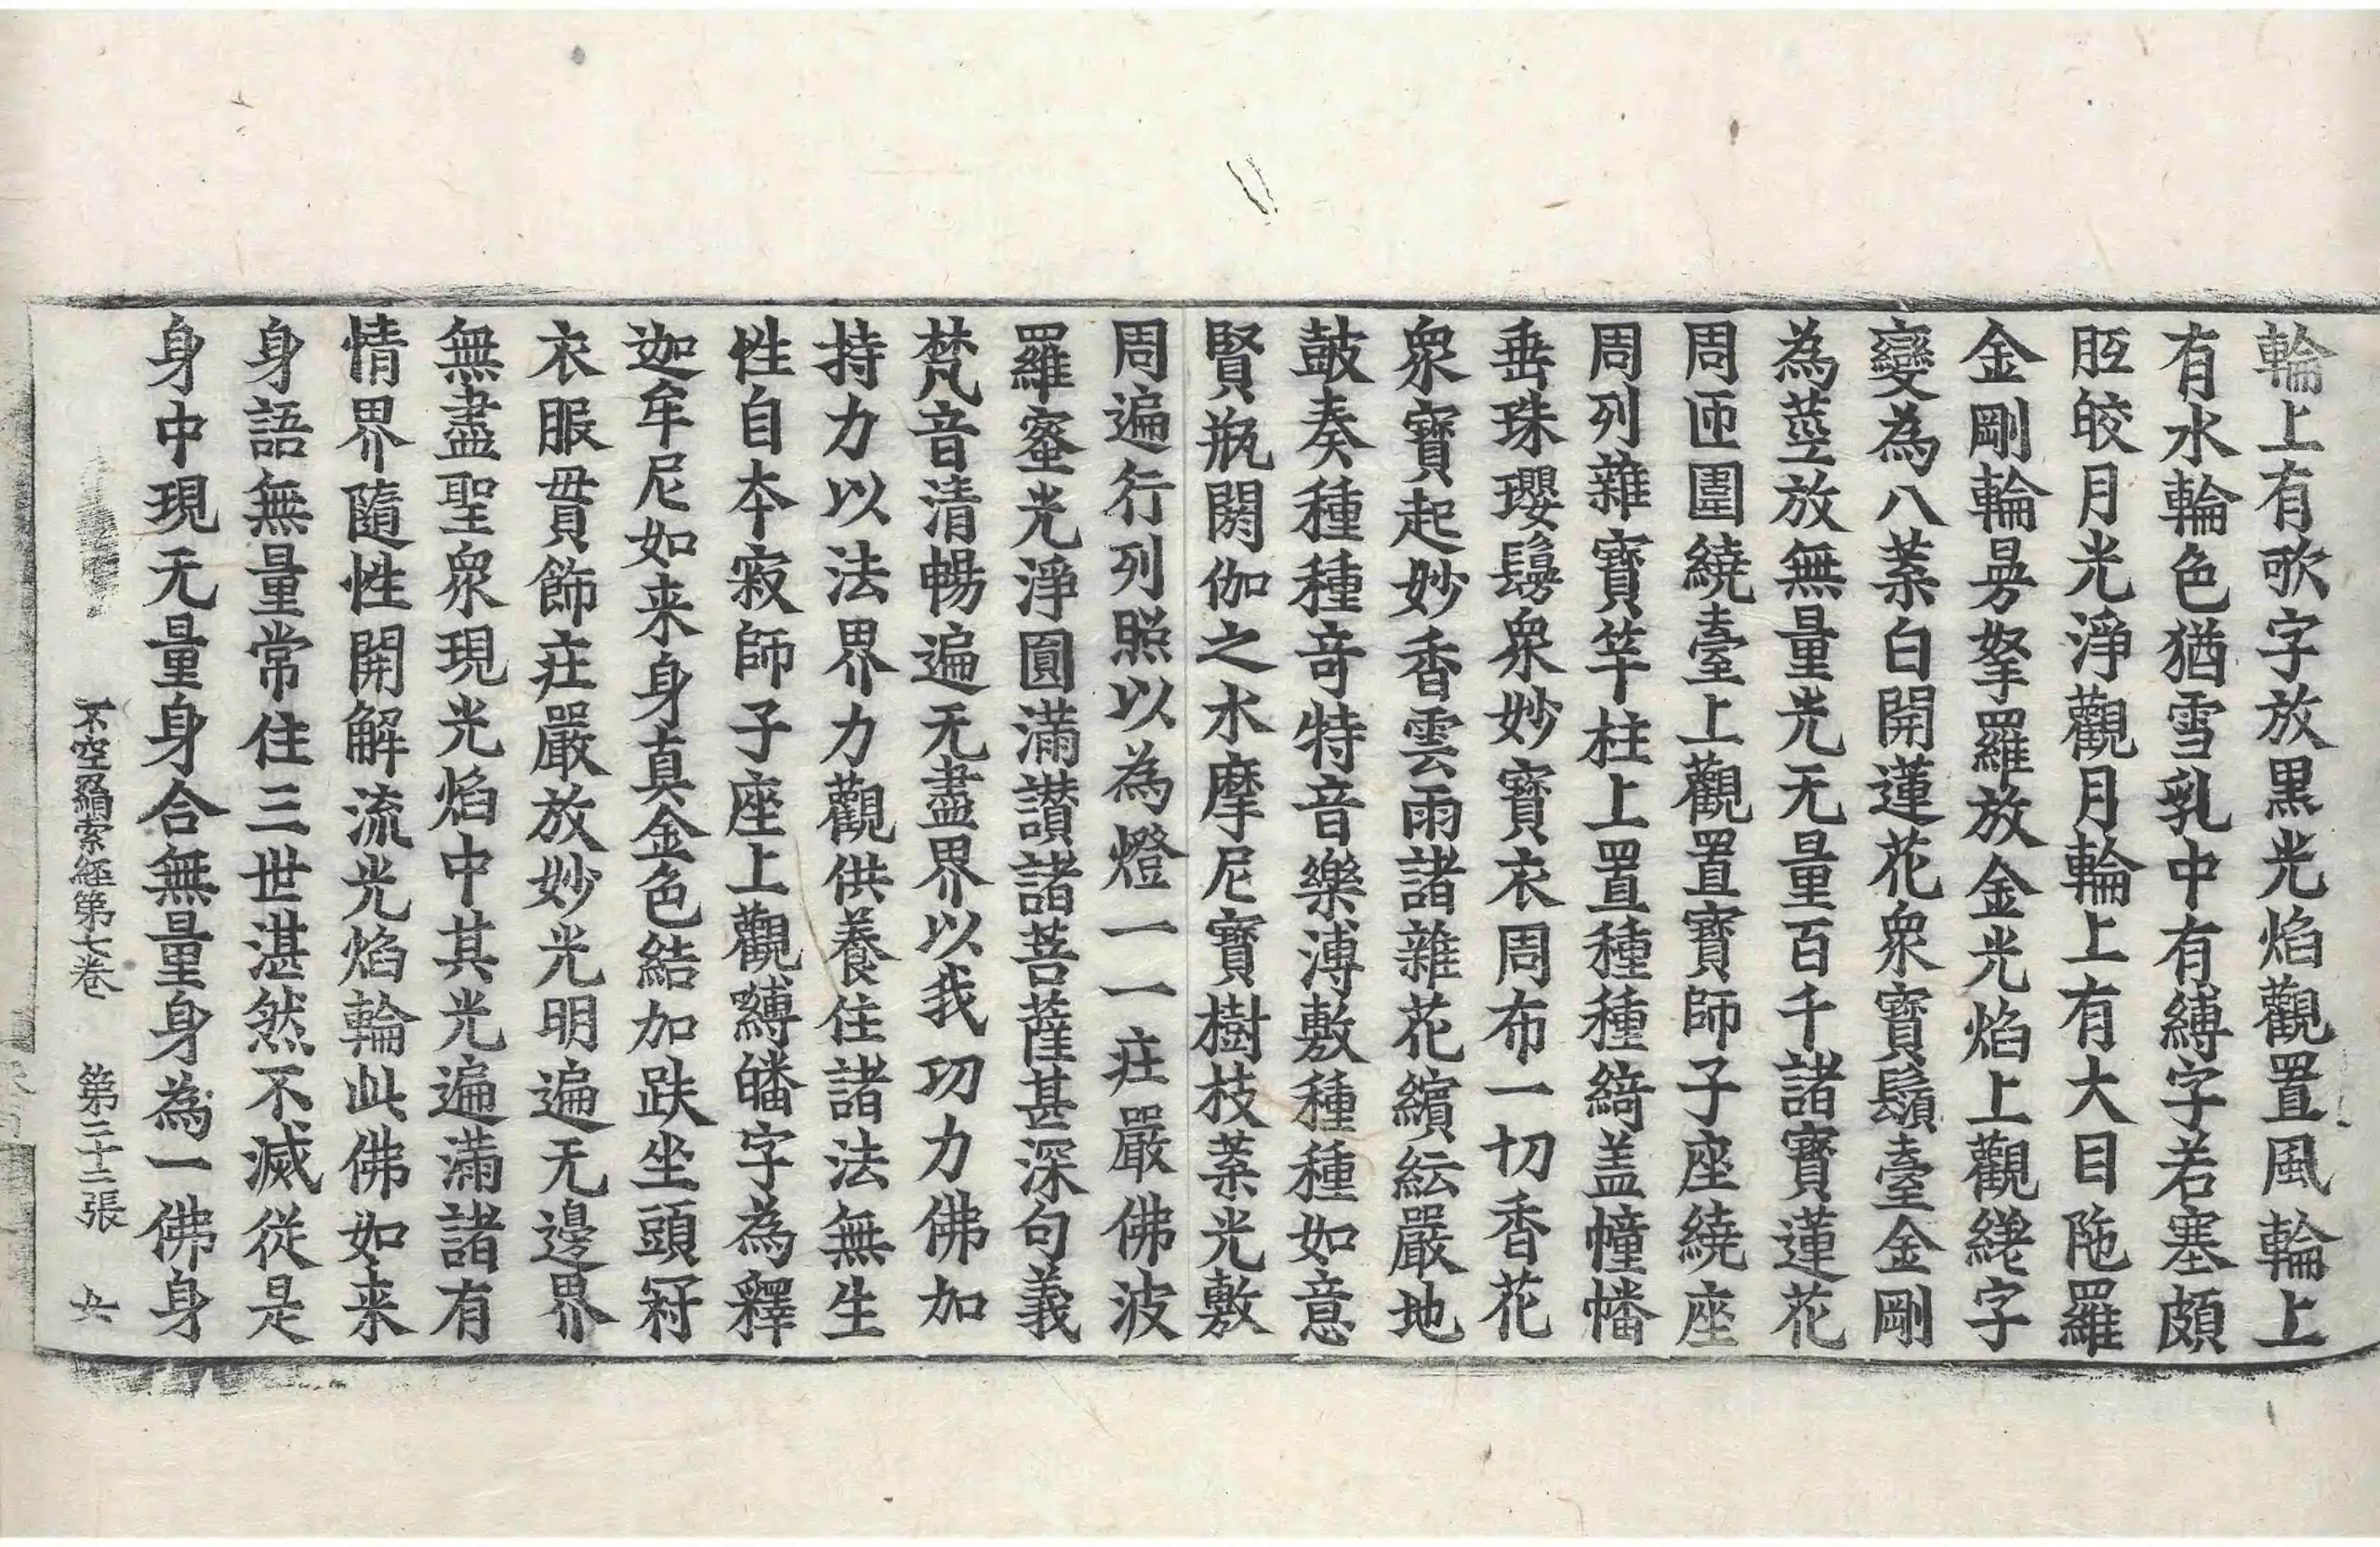 輪上有歌字放黑光焰觀置風輪上
有水輪色猶雪乳中有縛字若塞頗
胝皎月光淨觀月輪上有大目陁羅
金剛輪昜拏羅放金光焰上觀縒字
變為八葉白開蓮花衆寶鬚臺金剛
為莖放無量光无量百千諸寶蓮花
周匝圍繞臺上觀置寶師子座繞座
周列雜寶竿柱上置種種綺盖幢幡
垂珠瓔鬘衆妙寶衣周布一切香花
衆寶起妙香雲雨諸雜花繽紜嚴地
鼓奏種種竒特音樂溥敷種種如意
賢瓶閼伽之水摩尼寶樹枝葉光敷
周遍行列照以為燈一一莊嚴佛波
羅蜜光淨圓滿讃諸菩薩甚深句義
梵音清暢遍无盡界以我功力佛加
持力以法界力觀供養住諸法無生
性自本寂師子座上觀縛皤字為釋
迦牟尼如来身真金色結加趺坐頭冠
衣服貫飾莊嚴放妙光明遍无邊界
無盡聖衆現光焰中其光遍滿諸有
情界隨性開解流光焰輪此佛如来
身語無量常住三世湛然不滅從是
身中現无量身合無量身為一佛身
不空羂索經第七卷 第二十二張